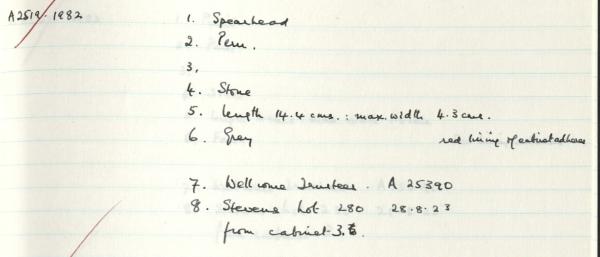 A2519.1982
1. Spearhead
2. Peru.
3.
4. Stone
5. length 14.4 cms. : max. width 4.3 cms.
6. Grey red lining of cabinet adheres
7. Wellcome Trustees. A 25390
8. Stevens Lot 280 28.8.23
from cabinet 3.